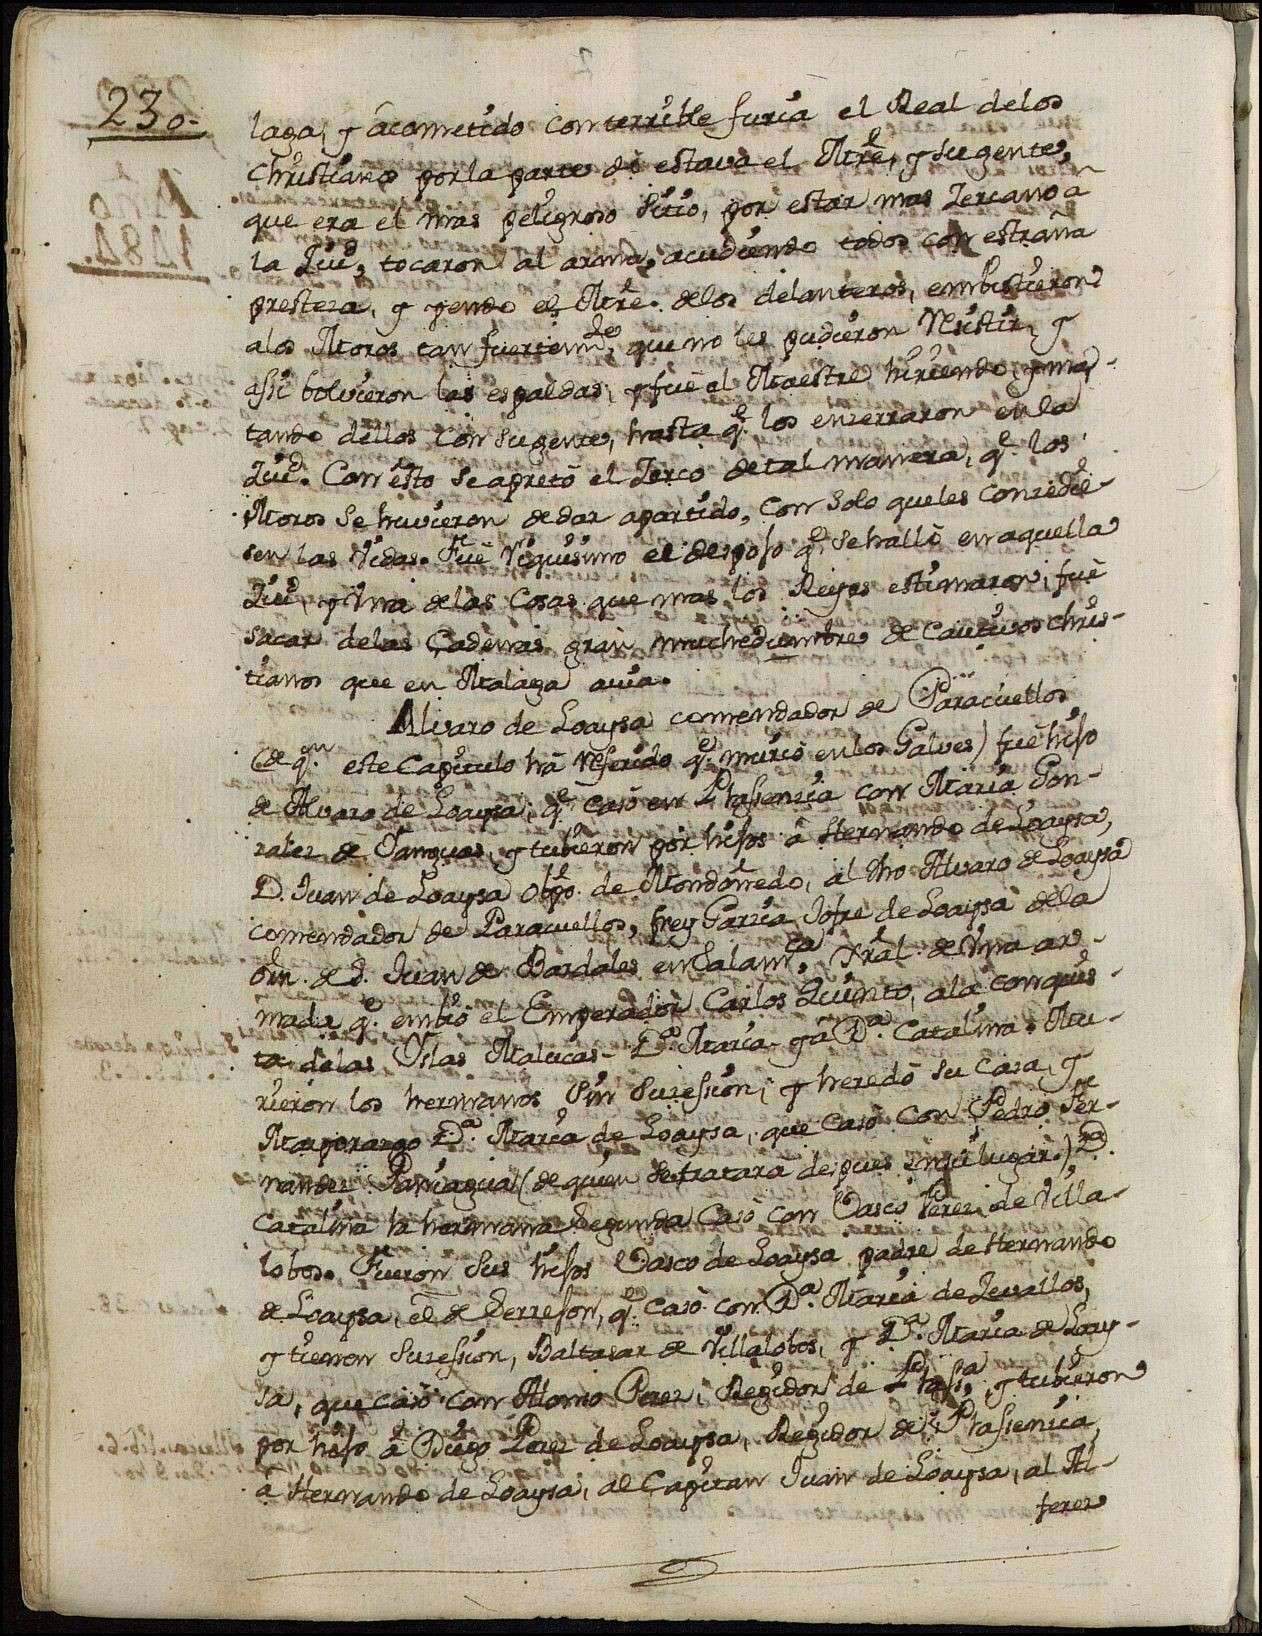 230.
laga, y acometido con terrible furia el Real delos
Christianos por la parte dō estava el Mrē, y su gente,
que era el mas peligroso sitio, por estar mas Zercano a
la Ziud, tocaron al arma, acudiendo todos con estraña
presteza, y yendo el Mrē. delos delanteros, embistieron
alos Moros tan fuertemte, que no les pudieron resistir, y
assi bolvieron las espaldas, y fuè el Maestre hiriendo, y ma-
tando dellos con su gente, hasta q̃. los enzerraron en la
Ziud. Con esto se apretò el Zerco de tal manera, q̃. los
Moros se huvieron de dar apartido, con solo queles conzedie-
sen las vidas. Fuè riquisimo el despojo q̃. se hallò en aquella
Ziud, y una delas cosas que mas los Reyes estimaron, fuè
sacar delas Cadenas gran muchedumbre de cautivos chris-
tianos que en Malaga avia.
Alvaro de Loaysa comendador de Paracuellos
(de qn. este Capitulo hà referido q̃. muriò en los Galves) fuè hijo
de Alvaro de Loaysa, q̃. casò en Plasenzia con Maria Gon-
zalez de Yanguas, y tubieron por hijos â Hernando de Loaysa,
D. Juan de Loaysa Obpo. de Mondoñedo, al dho Alvaro de Loaysa
comendador de Paracuellos, frey Garzia Jofre de Loaysa dela
Orn. de S. Juan de Bardales en Salamca, Xral. de una ar-
mada q̃. embiò el Emperador Carlos Quinto, ala conquis-
ta delas Yslas Malucas- Dª Maria- y â Dª. Catalina. Mu-
rieron los hermanos sin suzession, y heredò su casa, y
Mayorazgo Dª. Maria de Loaysa, que casò con Pedro Fer-
nandez Paniagua (de quien se tratara despues en su lugar.) Dª.
Catalina la hermana segunda casò con Vasco Perez de Villa-
lobos. Fueron sus hijos Vasco de Loaysa padre de Hernando
de Loaysa, el de Berrejon, q̃. casò con Dª. Maria de Zevallos,
y tienen suzession, Baltasar de Villalobos, y Dª. Maria de Loay-
sa, que casò con Alonso Perez, Regidor de Plasª, y tubieron
por hijo â Diego Perez de Loaysa, Regidor de Plasenzia,
a Hernando de Loaysa, al Capitan Juan de Loaysa, al Al-
ferez